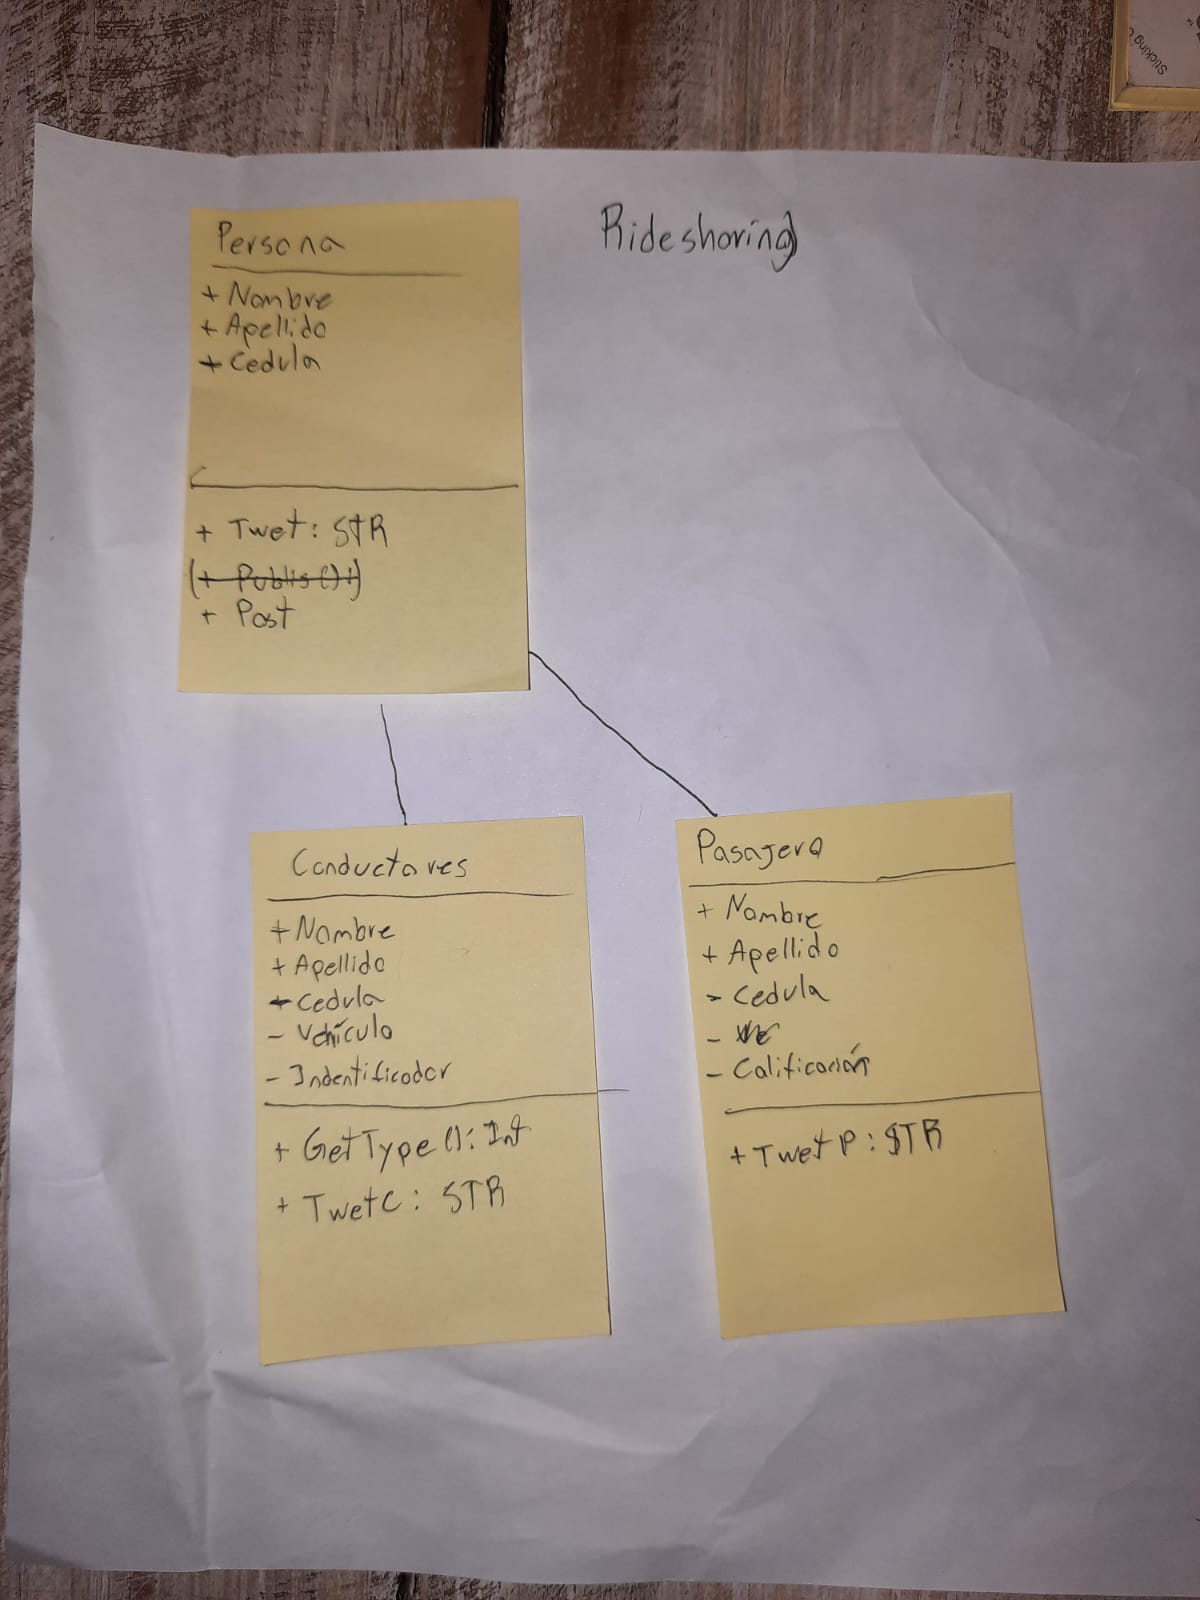 Sticking
Rideshoring
Persona
+ Nombre
+ Apellido
+ Cedula
+ Twet: STR
(+ Publis():)
+ Post
Conductores
+ Nombre
+ Apellido
+ Cedula
- Vehículo
- Indentificador
+ GetType(): Int
+ TwetC: STR
Pasajero
+ Nombre
+ Apellido
- Cedula
-
- Calificación
+ TwetP: STR